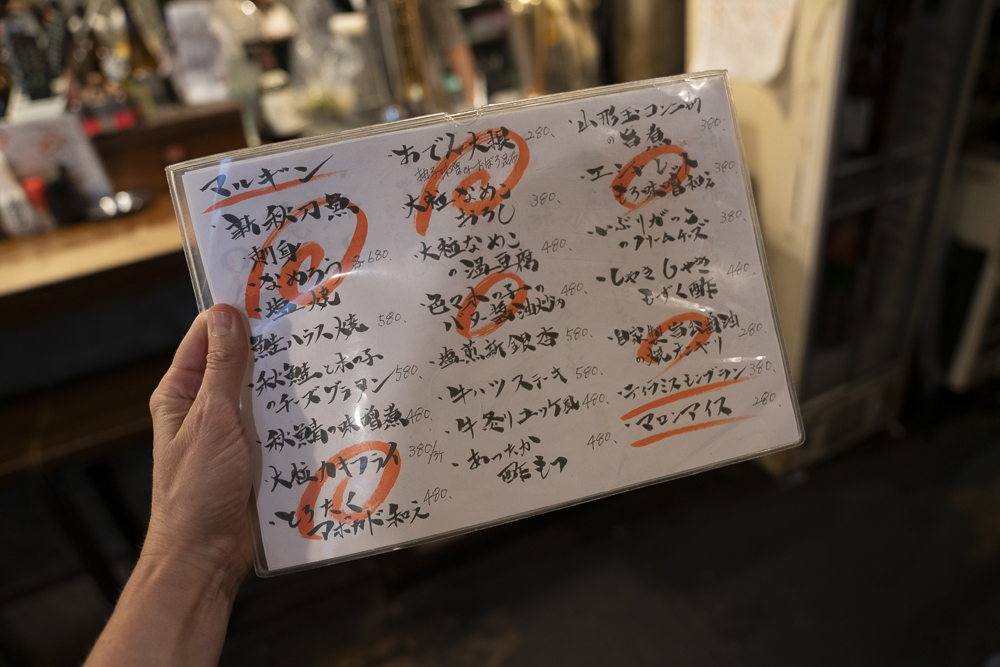 マルギン
・新秋刀魚
刺身
・なめろう 680.
・塩焼
鮭ハラス焼 580.
・秋鮭と木の子
のチーズグラタン 580.
・秋鯖の味噌煮 480.
・大粒カキフライ 380/ケ
・とろたく
アボカド和え 480.
・おでん大根 280.
大粒なめこ
おろし 380.
・大粒なめこ
の温豆腐 480.
色々木の子の
バター醤油炒め 480.
・塩煎新銀杏 580.
・牛ハツステキ 580.
・牛炙りユッケ風 480.
・あったか
酢もつ 480.
・山形玉コンニャク
の旨煮 380.
味噌和え 380.
・いぶりがっこ
のクリームチーズ 380.
・しゃきしゃき
もずく酢 480.
280.
・ティラミスモンブラン 380.
・マロンアイス 280.